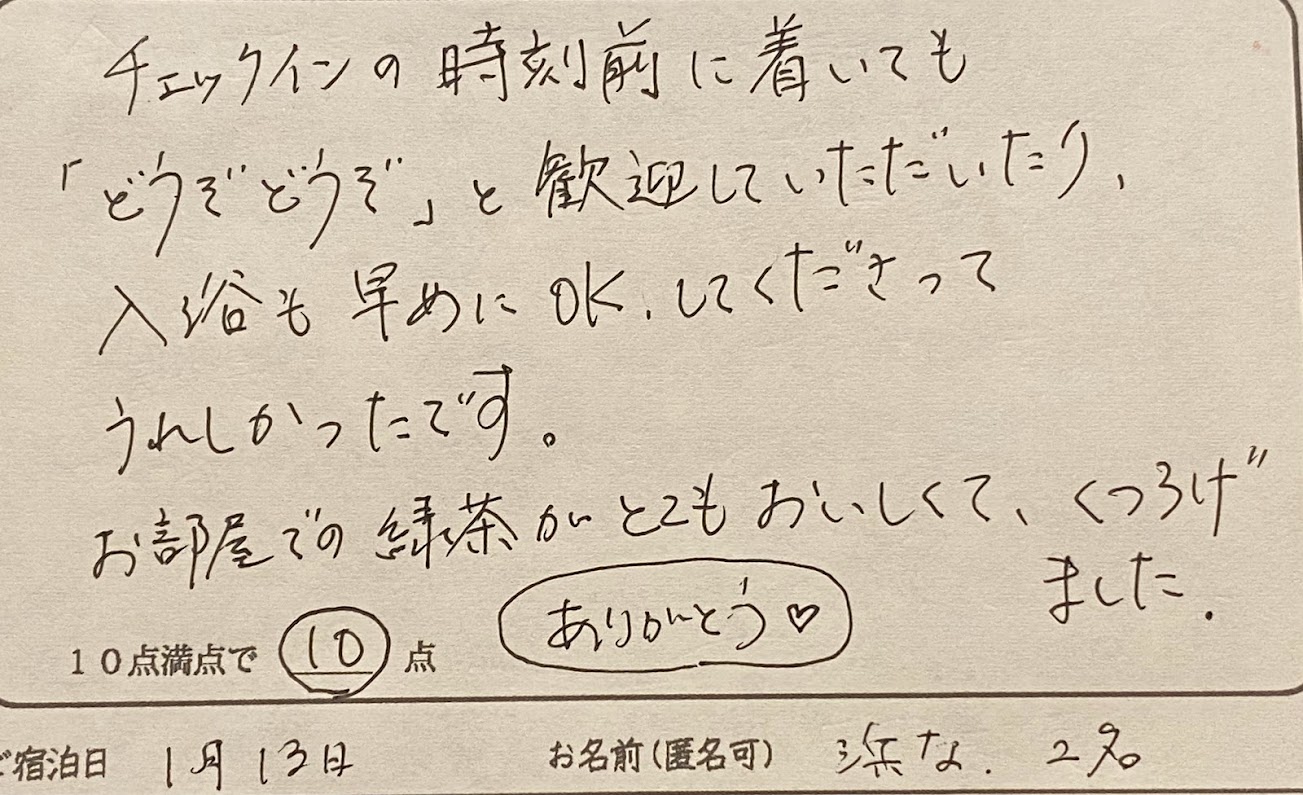 チェックインの時刻前に着いても
「どうぞどうぞ」と歓迎していただいたり、
入浴も早めにOK.してくださって
うれしかったです。
お部屋での緑茶がとてもおいしくて、くつろげ
ました.
ありがとう♡
10点満点で 10 点
ご宿泊日 1月13日 お名前(匿名可)